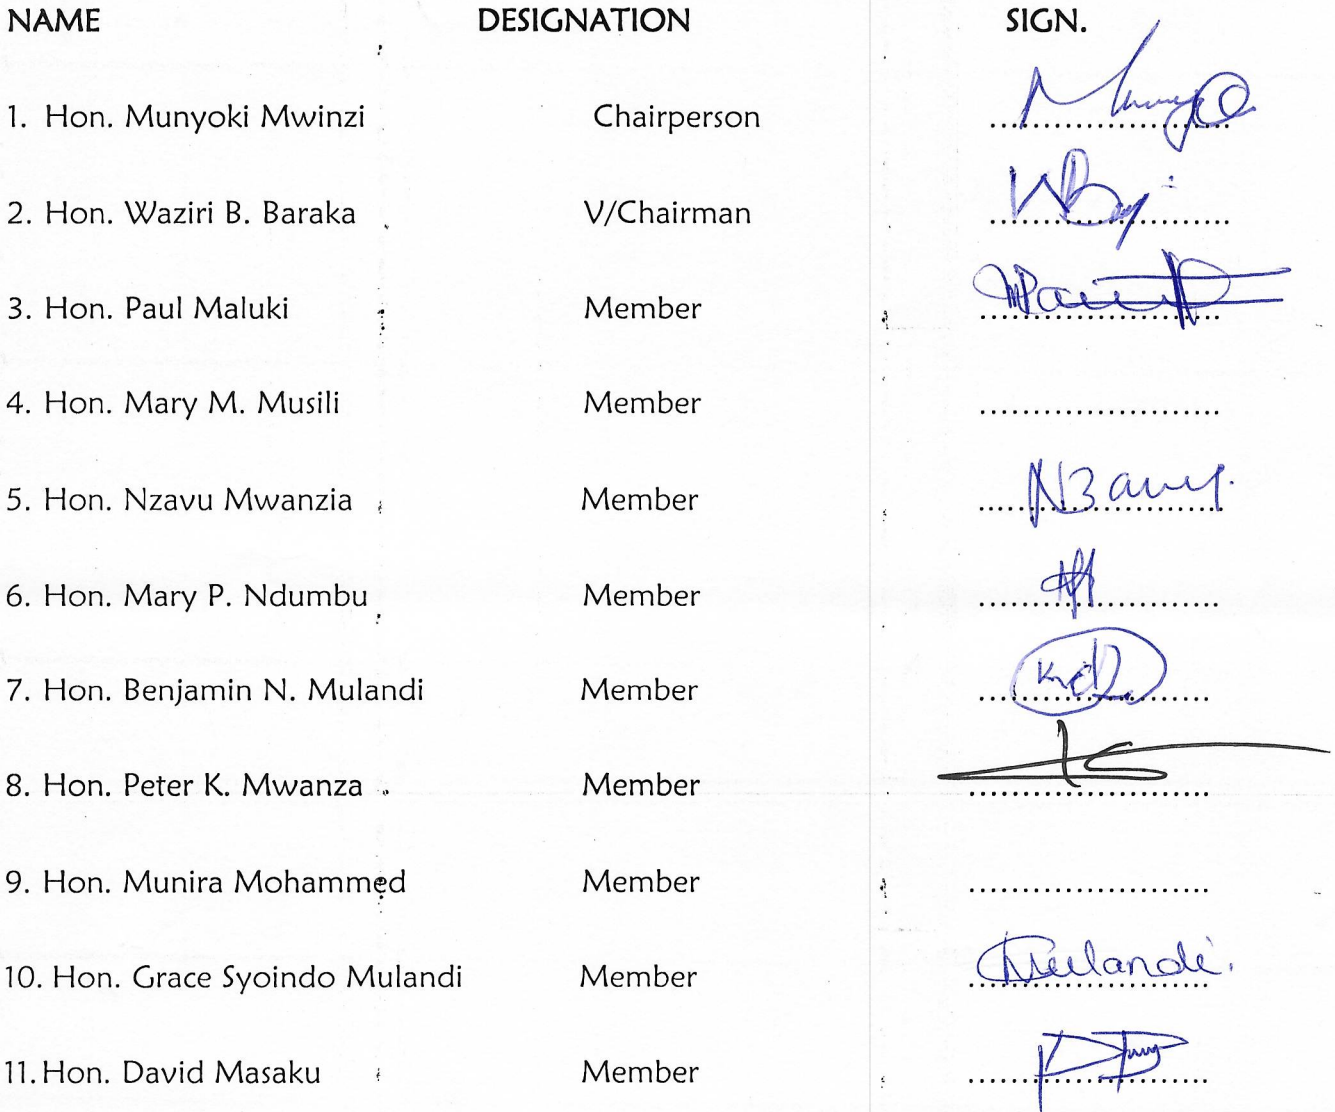 NAME DESIGNATION SIGN.
1. Hon. Munyoki Mwinzi Chairperson ........................
2. Hon. Waziri B. Baraka V/Chairman ........................
3. Hon. Paul Maluki Member ........................
4. Hon. Mary M. Musili Member ........................
5. Hon. Nzavu Mwanzia Member ........................
6. Hon. Mary P. Ndumbu Member ........................
7. Hon. Benjamin N. Mulandi Member ........................
8. Hon. Peter K. Mwanza Member ........................
9. Hon. Munira Mohammed Member ........................
10. Hon. Grace Syoindo Mulandi Member Mulandi.
11. Hon. David Masaku Member ........................